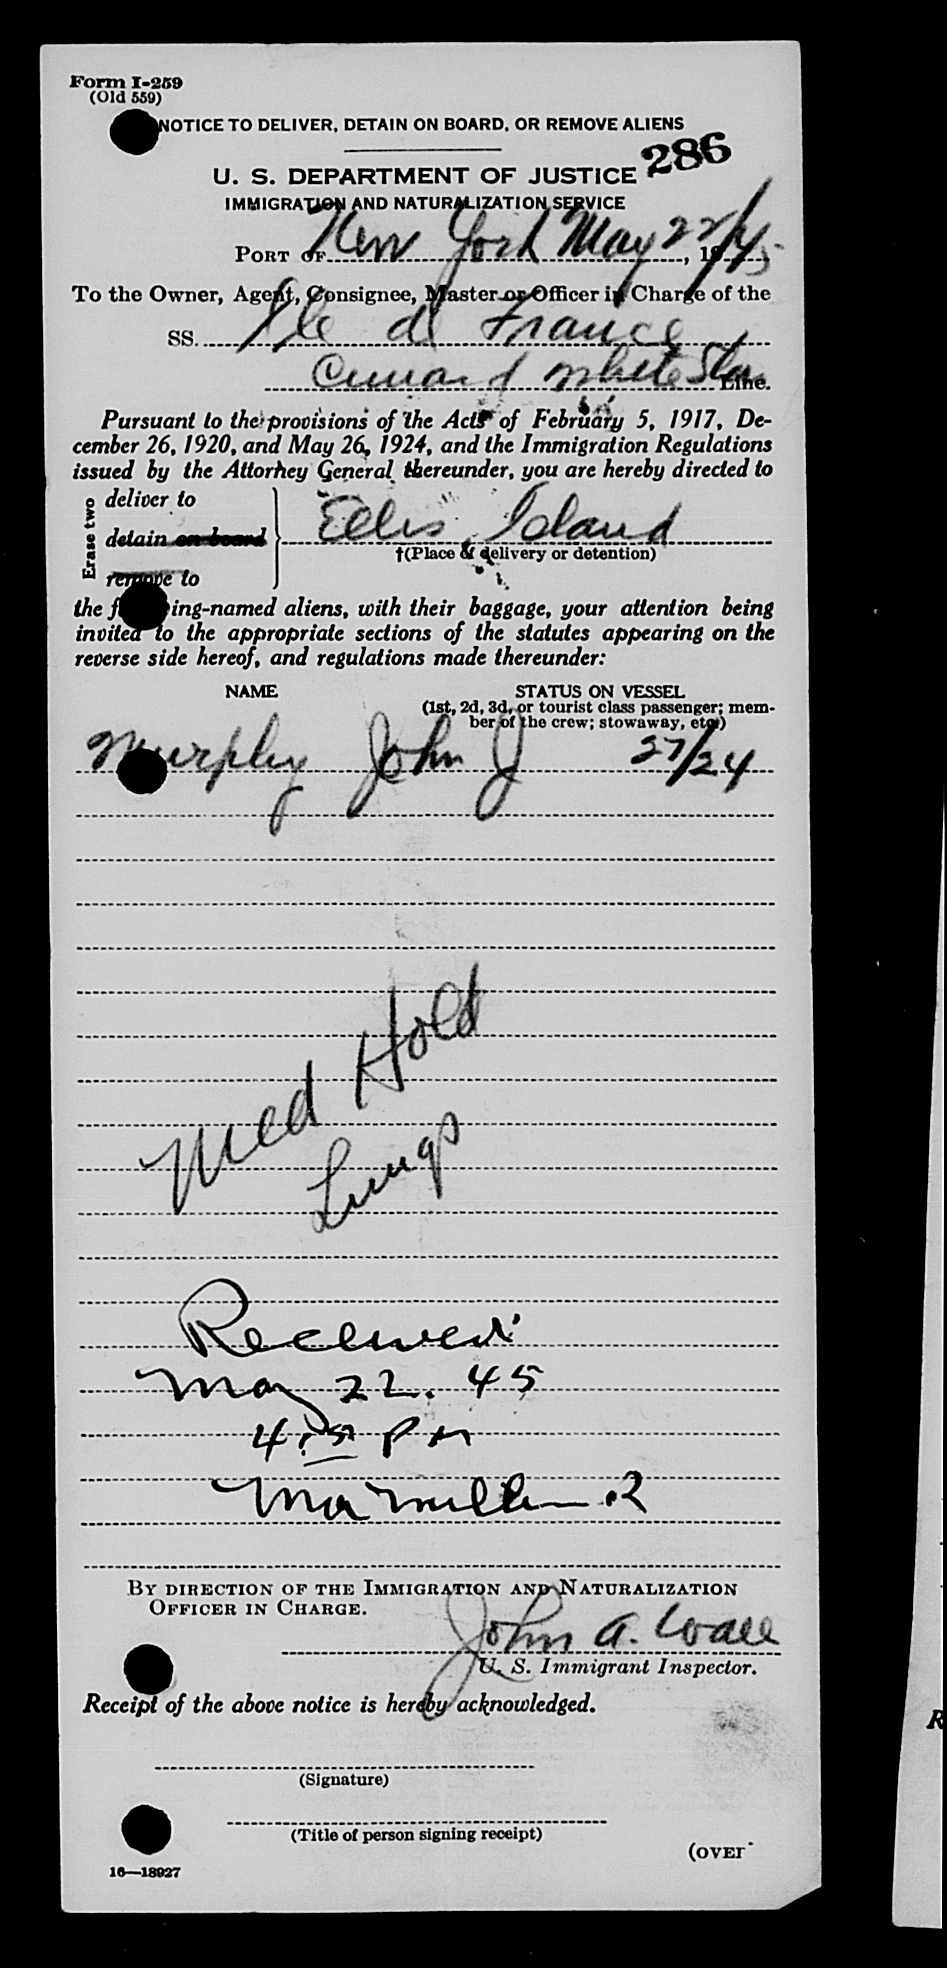 Form I-259
(Old 559)
NOTICE TO DELIVER, DETAIN ON BOARD, OR REMOVE ALIENS
286
U. S. DEPARTMENT OF JUSTICE
IMMIGRATION AND NATURALIZATION SERVICE
PORT OF New York May 22/45, 19
To the Owner, Agent, Consignee, Master or Officer in Charge of the
SS. Ile de France
Cunard White Star Line.
Pursuant to the provisions of the Acts of February 5, 1917, De-
cember 26, 1920, and May 26, 1924, and the Immigration Regulations
issued by the Attorney General thereunder, you are hereby directed to
Erase two
deliver to
detain on board
remove to
Ellis Island
†(Place of delivery or detention)
the following-named aliens, with their baggage, your attention being
invited to the appropriate sections of the statutes appearing on the
reverse side hereof, and regulations made thereunder:
NAME STATUS ON VESSEL
(1st, 2d, 3d, or tourist class passenger; mem-
ber of the crew; stowaway, etc.)
Murphy John J 27/24
Med Hold
Lungs
Received
May 22. 45
4:15 PM
BY DIRECTION OF THE IMMIGRATION AND NATURALIZATION
OFFICER IN CHARGE.
John A. Wall
U. S. Immigrant Inspector.
Receipt of the above notice is hereby acknowledged.
(Signature)
(Title of person signing receipt)
(OVER
16—18927
R